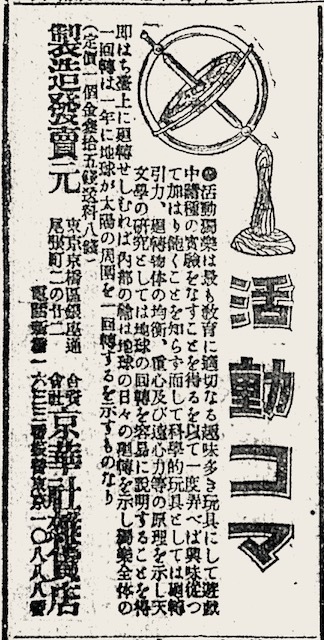 活動コマ
●活動獨樂は最も教育に適切なる趣味多き玩具にして遊戯
中諸種の實驗をなすことを得るを以て一度弄べば興味從つ
て加はり飽くことを知らず而して科學的玩具としては廻轉
引力、廻轉物体の均衡、重心及び遠心力等の原理を示し天
文學の研究としては地球の回轉を容易に説明することを得
即はち臺上に廻轉せしむれば内部の輪は地球の日々の廻轉を示し獨樂全体の
一回轉は一年に地球が太陽の周圍を一回轉するを示すものなり
(定價一個金參拾五錢送料八錢)
製造發賣元
東京京橋區銀座通
尾張町二の廿二
合資會社京華社雜貨店
電話新橋一六三三番振替東京一〇八八八番